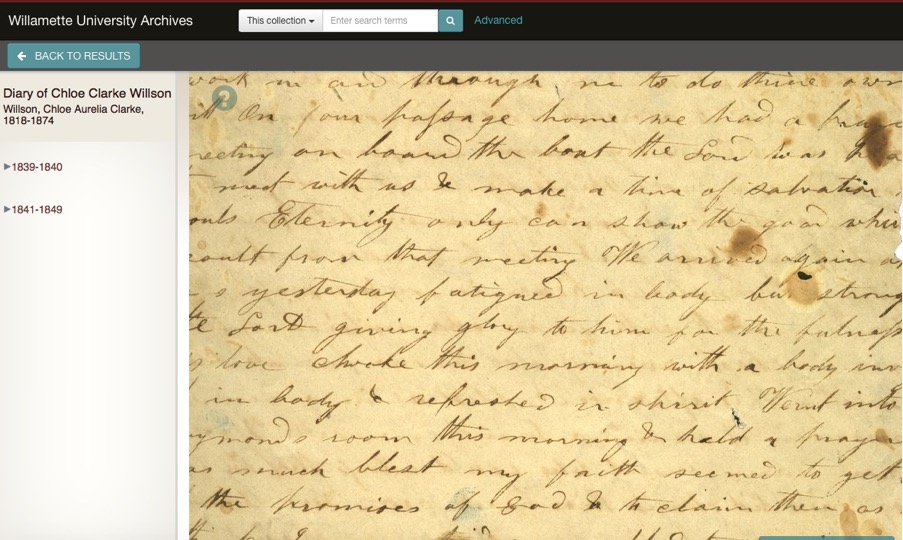 Willamette University Archives
This collection
Enter search terms
Advanced
BACK TO RESULTS
Diary of Chloe Clarke Willson
Willson, Chloe Aurelia Clarke,
1818-1874
1839-1840
1841-1849
?
work in and through me to do thine own
On our passage home we had a
on board the boat the Lord was
met with us & make a time of salvation
Eternity only can show the good
from that meeting We arrived again
yesterday fatigued in body but strong
Lord giving glory to him for the fulness
love awoke this morning with a body
in body & refreshed in spirit Went into
room this morning & held a prayer
much blest my faith seemed to get
the promises of God & to claim them as